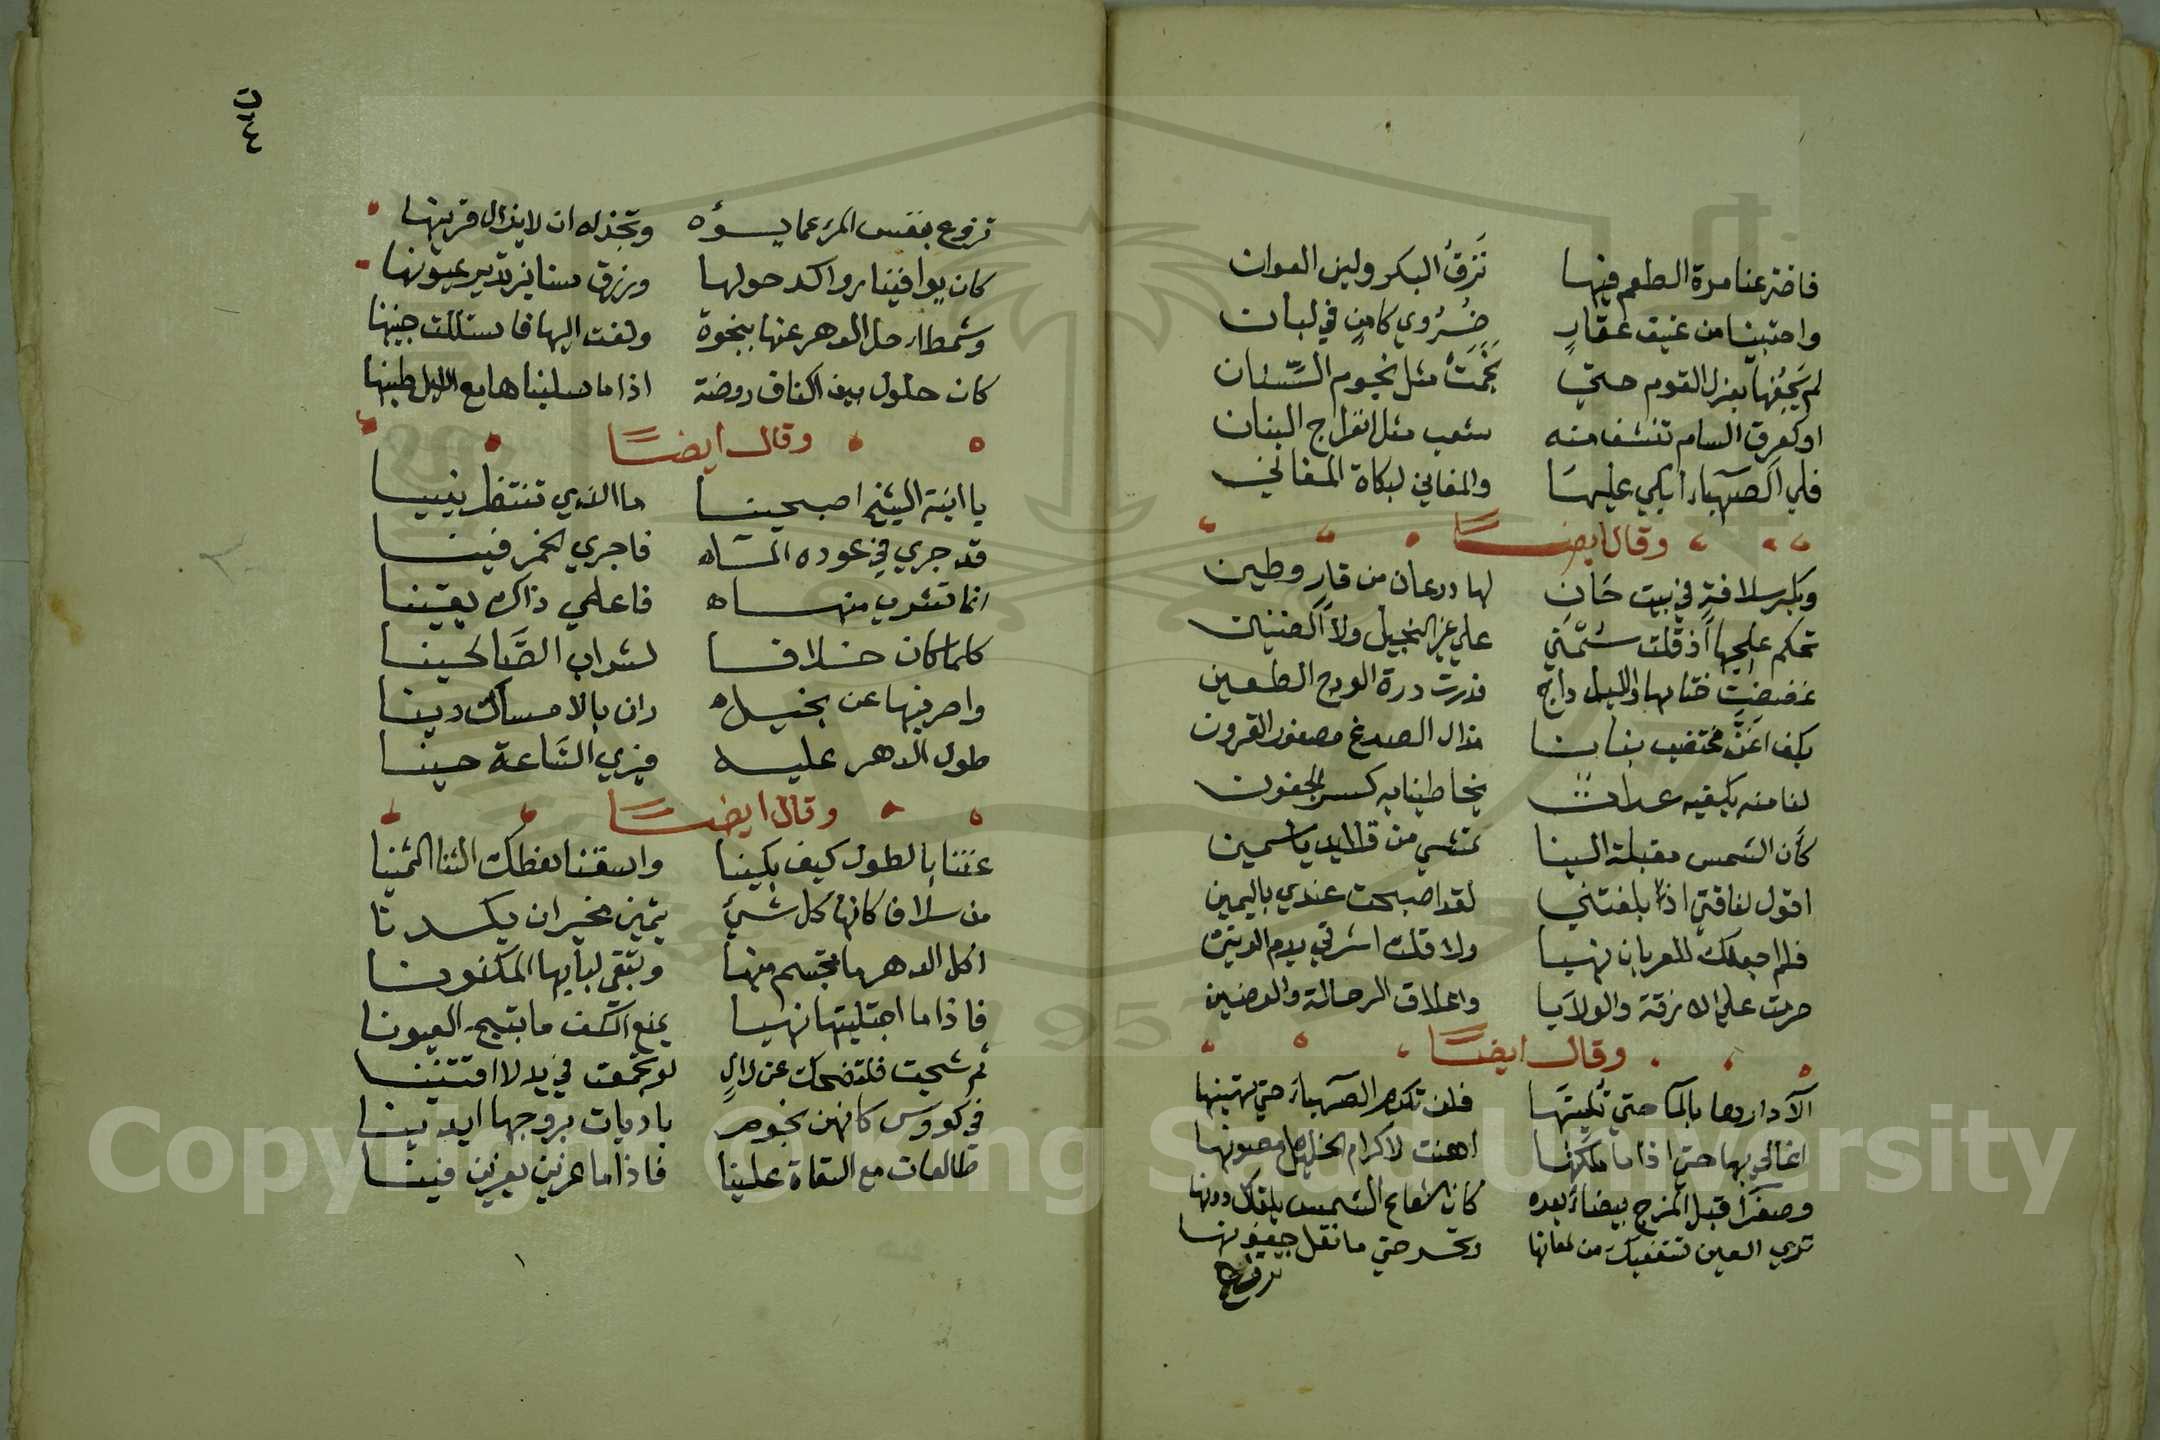 فافترعنا مرة الطعم فيها نَزَقُ البكر ولين العوان
واحتبينا من عنيف عقارٍ ضُرُوي كامنٍ في لبان
لم يَجُفها بعزل القوم حتي نَجَمَتْ مثل نجوم السنان
او كعرق السام تنشف منه شعب مثل انفراج البنان
فلي الصهباء أبكي عليها والمغاني لبكاة المغاني
وقال ايضا
وبكر سلافة في بيت حَانٍ لها درعان من قار وطين
تحكم علجها اذ قلت سُمني علي غير البخيل ولا الضنين
غضضت ختامها والليل داج فدرت درة الودج الطعين
بكف اغن مختضب بنانا مذال الصدغ مضفور القرون
لنا منه بكيفيه عدات يخاطبنا به كسر الجفون
كأن الشمس مقبلة الينا تمشي من قلايد ياسمين
اقول لناقتي اذا بلغتني لقد اصبحت عندي باليمين
فلم اجعلك للعربان نهبا ولا قلت اشرقي بدم الوتين
حرمت علي الازمة والولايا واعلاق الرحالة والوضين
وقال ايضا
الا دارها بالماء حتي تلينها فلن تكرم الصهباء حتي تهينها
اغالي بها حتي اذا ما ملكتها اهنت لاكرام الخليل مصونها
وصفرا قبل المزج بيضاء بعده كان شعاع الشمس يلقاك دونها
تري العين تستعفيك من لمعانها وتحسر حتي ما تقل جفونها
تروع
١٣٤
تروع بنفس المرء عما يسؤه وتجذله ان لا يزال قرينها
كان يواقيتا رواكد حولها وزرق سنانير تدير عيونها
وشمطاء حل الدهر عنها بنجوة دلفت اليها فاستللت جنينها
كان حلول بين اكناف روضة اذا ما سلبناها مع الليل طينها
وقال ايضا
يا ابنة الشيخ اصبحينا ما الذي تنتظرينا
قد جري في عوده الماء فاجري الخمر فينا
انما نشرب منها فاعلمي ذاك يقينا
كلما كان خلافا لشراب الصالحينا
واصرفيها عن بخيل دان بالامساك دينا
طول الدهر عليه فيري الساعة حينا
وقال ايضا
غننا بالطلول كيف بلينا واسقنا نعطك الثنا الثمينا
من سلاف كانها كل شيء يتمني مخير ان يكونا
اكل الدهر ما تجسم منها وتبقي لبابها المكنونا
فاذا ما اجتليتها فهبا يمنع الكف ما يبيح العيونا
ثم شجت فاستضحكت عن لال لو تجمعت في يد لاقتنينا
في كووس كانهن نجوم باديات بروجها ايدينا
طالعات مع السقاة علينا فاذا ما غربن يغربن فينا
Copyright © King Saud University
1957